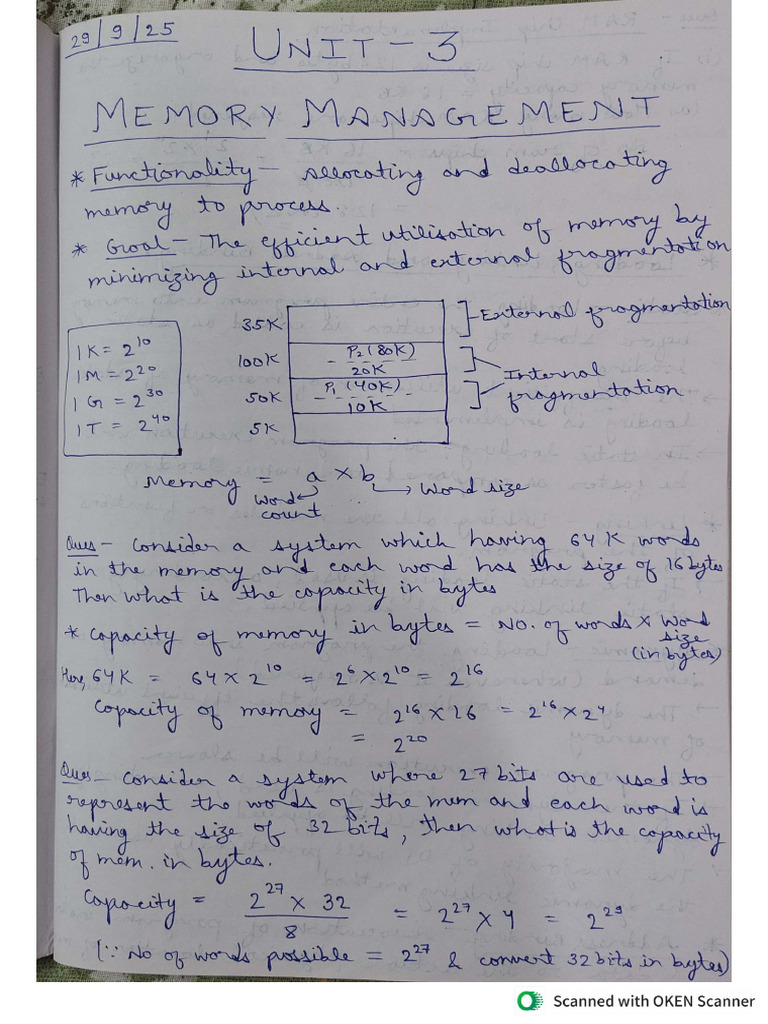 29/9/25
UNIT-3
MEMORY MANAGEMENT
* Functionality - Allocating and deallocating
memory to process.
* Goal - The efficient utilisation of memory by
minimizing internal and external fragmentation
1K = 2^10
1M = 2^20
1G = 2^30
1T = 2^40
35K
External fragmentation
100K
P2 (80K)
20K
Internal
fragmentation
50K
P1 (40K)
10K
5K
Memory = a × b → Word size
Word
count
Ques - Consider a system which having 64 K words
in the memory and each word has the size of 16 bytes
Then what is the capacity in bytes
* Capacity of memory in bytes = No. of words × Word
size
(in bytes)
Here, 64K = 64 × 2^10 = 2^6 × 2^10 = 2^16
Capacity of memory = 2^16 × 16 = 2^16 × 2^4
= 2^20
Ques - Consider a system where 27 bits are used to
represent the words of the mem and each word is
having the size of 32 bits, then what is the capacity
of mem. in bytes.
Capacity = 2^27 × 32 / 8 = 2^27 × 4 = 2^29
(∵ No of words possible = 2^27 & convert 32 bits in bytes)
Scanned with OKEN Scanner